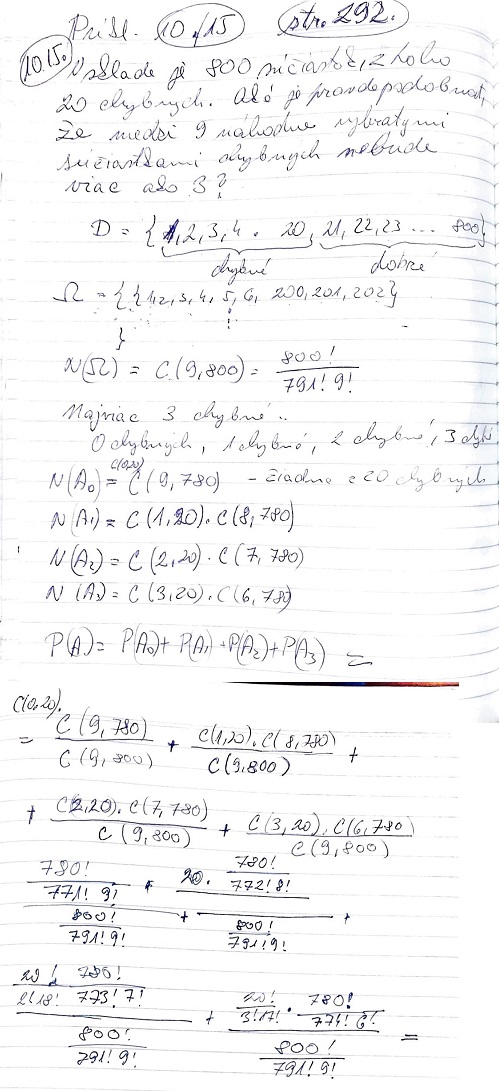 Príkl. 10.15 str. 292.
10.15. V sklade je 800 súčiastok, z toho
20 chybných. Aká je pravdepodobnosť,
že medzi 9 náhodne vybratými
súčiastkami chybných nebude
viac ako 3?
D = {1,2,3,4 . 20, 21, 22, 23 ... 800}
chybné dobré
Ω = {{1,2,3,4,5,6, 200,201,202}
⋮
}
N(Ω) = C(9,800) = 800! / 791! 9!
Najviac 3 chybné..
0 chybných, 1 chybná, 2 chybné, 3 chyb
C(0,20)
N(A₀) = C(9,780) - žiadna z 20 chybných
N(A₁) = C(1,20).C(8,780)
N(A₂) = C(2,20).C(7,780)
N(A₃) = C(3,20).C(6,780)
P(A) = P(A₀) + P(A₁) + P(A₂) + P(A₃) =
C(0,20).
= C(9,780) / C(9,800) + C(1,20).C(8,780) / C(9,800) +
+ C(2,20).C(7,780) / C(9,800) + C(3,20).C(6,780) / C(9,800)
780! / 771! 9! / 800! / 791! 9! + 20. 780! / 772! 8! / 800! / 791! 9! +
20! / 2! 18! . 780! / 773! 7! / 800! / 791! 9! + 20! / 3! 17! . 780! / 774! 6! / 800! / 791! 9! =